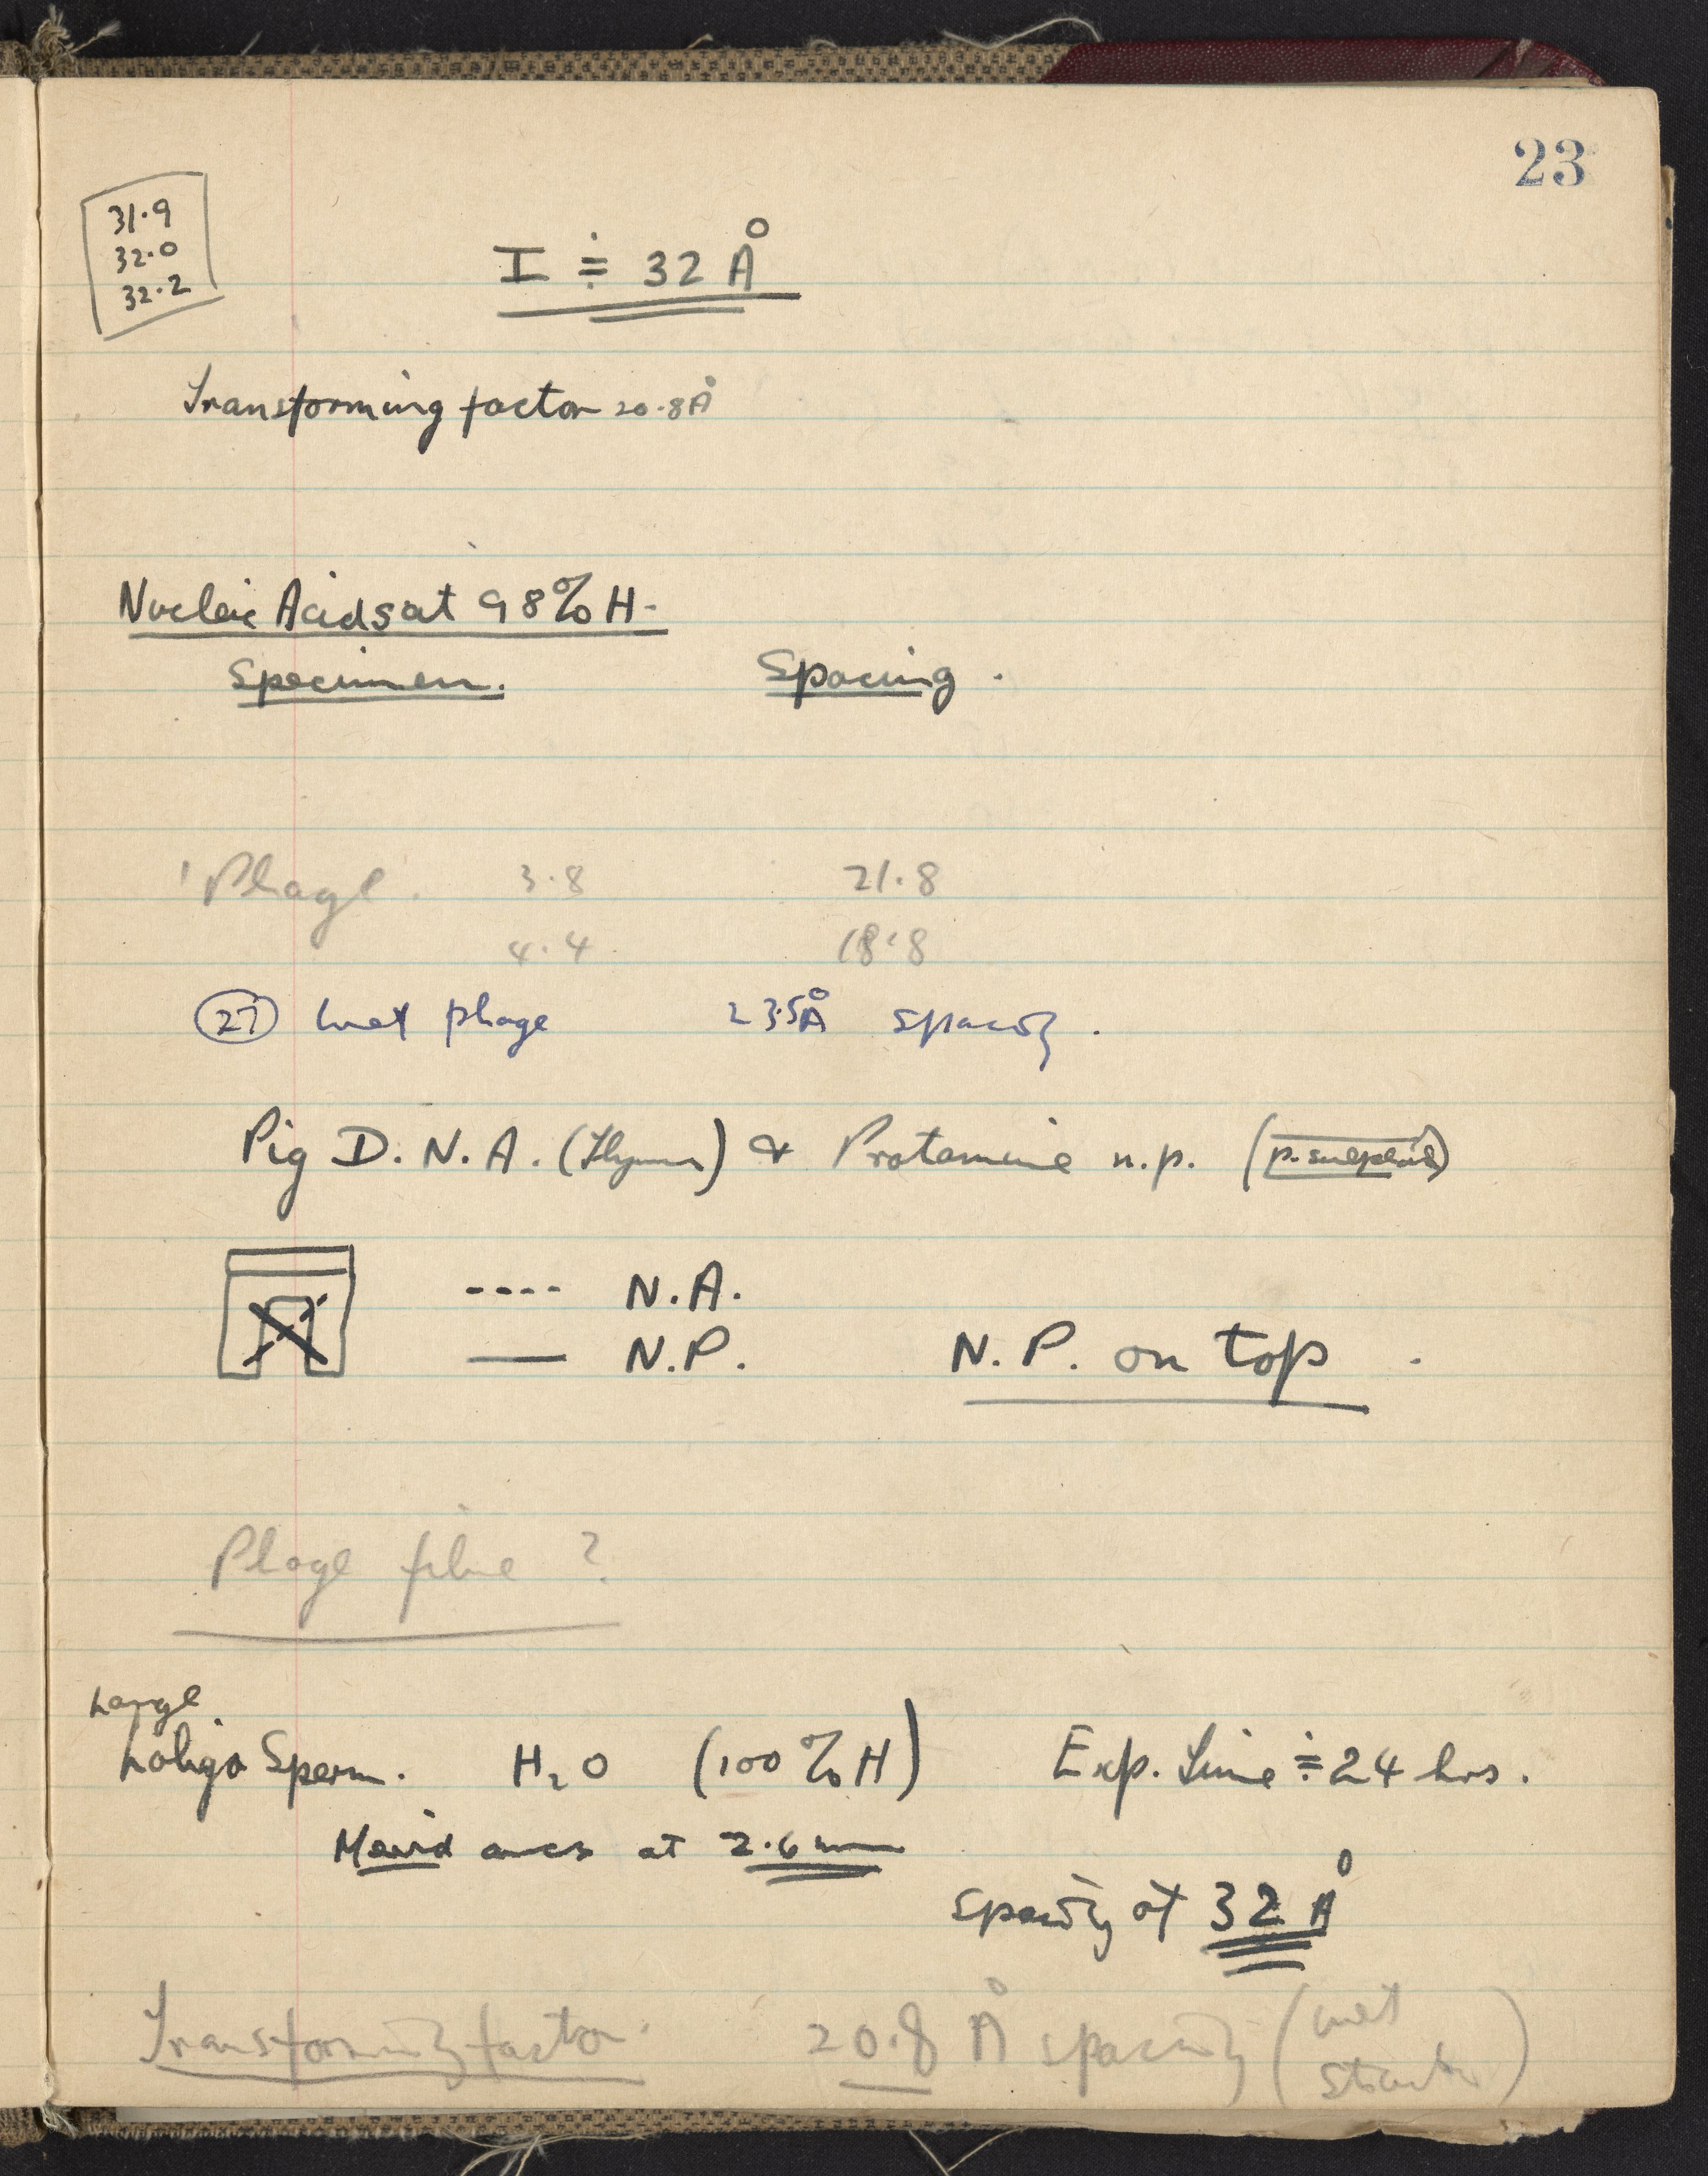 23
31.9
32.0
32.2
I ≑ 32 Å
Transforming factor 20.8Å
Nucleic Acids at 98% H.
Specimen. Spacing.
Phage. 3.8 21.8
4.4 18.8
27 Wet phage 23.5Å spacing.
Pig D.N.A. (Thymus) & Protamine n.p.
---- N.A.
— N.P. N.P. on top.
Phage fibre ?
Large
Loligo Sperm. H₂O (100% H) Exp. Time ≑ 24 hrs.
Merid arcs at 2.6 mm
Spacing at 32 Å
Transforming factor. 20.8 Å spacing (wet